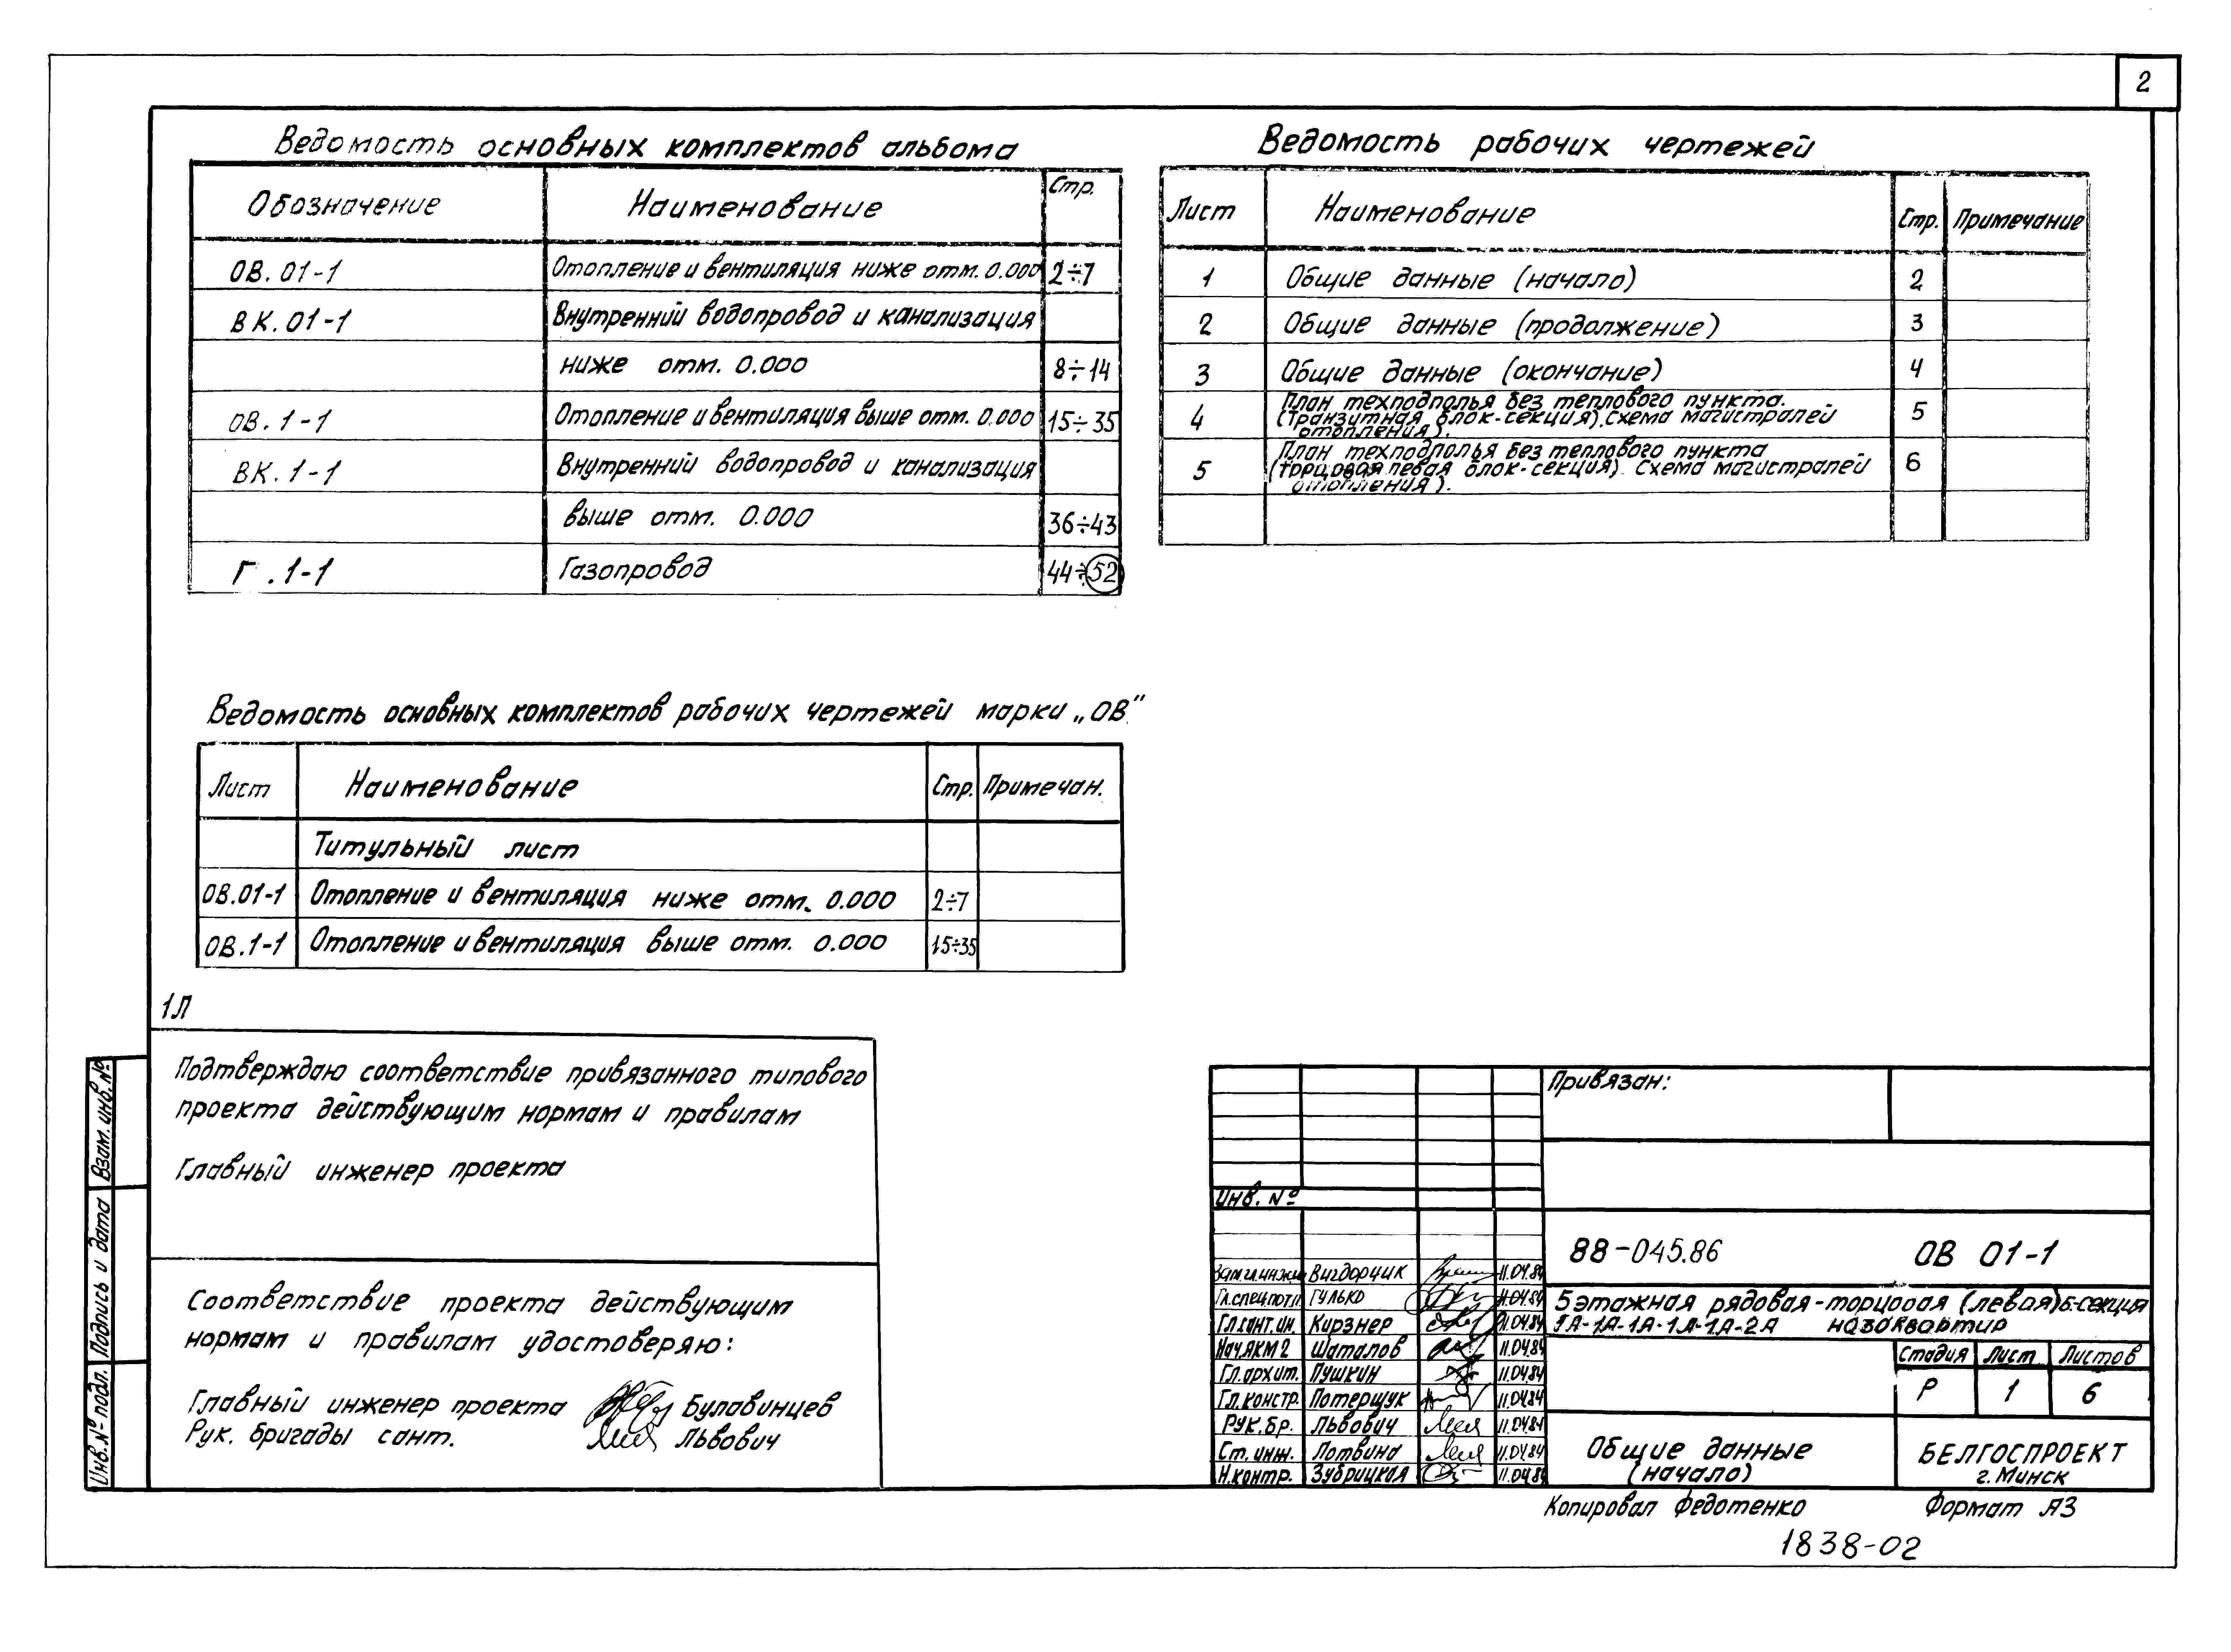 2
Ведомость основных комплектов альбома
Обозначение Наименование Стр.
ОВ.01-1 Отопление и вентиляция ниже отм. 0.000 2÷7
ВК.01-1 Внутренний водопровод и канализация
ниже отм. 0.000 8÷14
ОВ.1-1 Отопление и вентиляция выше отм. 0.000 15÷35
ВК.1-1 Внутренний водопровод и канализация
выше отм. 0.000 36÷43
Г.1-1 Газопровод 44÷52
Ведомость рабочих чертежей
Лист Наименование Стр. Примечание
1 Общие данные (начало) 2
2 Общие данные (продолжение) 3
3 Общие данные (окончание) 4
План техподполья без теплового пункта.
4 (Транзитная блок-секция). Схема магистралей 5
отопления).
План техподполья без теплового пункта
5 (торцовая левая блок-секция). Схема магистралей 6
отопления).
Ведомость основных комплектов рабочих чертежей марки „ОВ"
Лист Наименование Стр. Примечан.
Титульный лист
ОВ.01-1 Отопление и вентиляция ниже отм. 0.000 2÷7
ОВ.1-1 Отопление и вентиляция выше отм. 0.000 15÷35
1Л
Подтверждаю соответствие привязанного типового
проекта действующим нормам и правилам
Главный инженер проекта
Соответствие проекта действующим
нормам и правилам удостоверяю:
Главный инженер проекта Булавинцев
Рук. бригады сант. Львович
Взам. инв. №
Подпись и дата
Инв. № подл.
Привязан:
Инв. №
88-045.86 ОВ 01-1
Зам.гл.инж. Вигдорчик 11.04.84
Гл.спец. ГУЛЬКО 11.04.84
Гл.сант.ин. Кирзнер 11.04.84
Нач.АКМ2 Шаталов 11.04.84
Гл.архит. Пушкин 11.04.84
Гл.констр. Потерщук 11.04.84
Рук.бр. Львович 11.04.84
Ст.инж. Лотвина 11.04.84
Н.контр. Зубрицкая 11.04.84
5 этажная рядовая-торцовая (левая) б-секция
1А-1А-1А-1А-1А-2А на 30 квартир
Стадия Лист Листов
Р 1 6
Общие данные
(начало)
БЕЛГОСПРОЕКТ
г. Минск
Копировал Федотенко Формат А3
1838-02